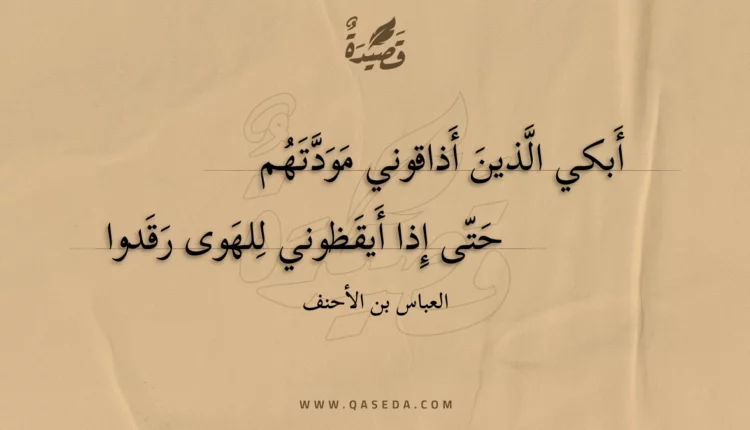 قَصِيْدَةٌ
أَبكي الَّذينَ أَذاقوني مَوَدَّتَهُم
حَتّى إِذا أَيقَظوني لِلهَوى رَقَدوا
العباس بن الأحنف
WWW.QASEDA.COM